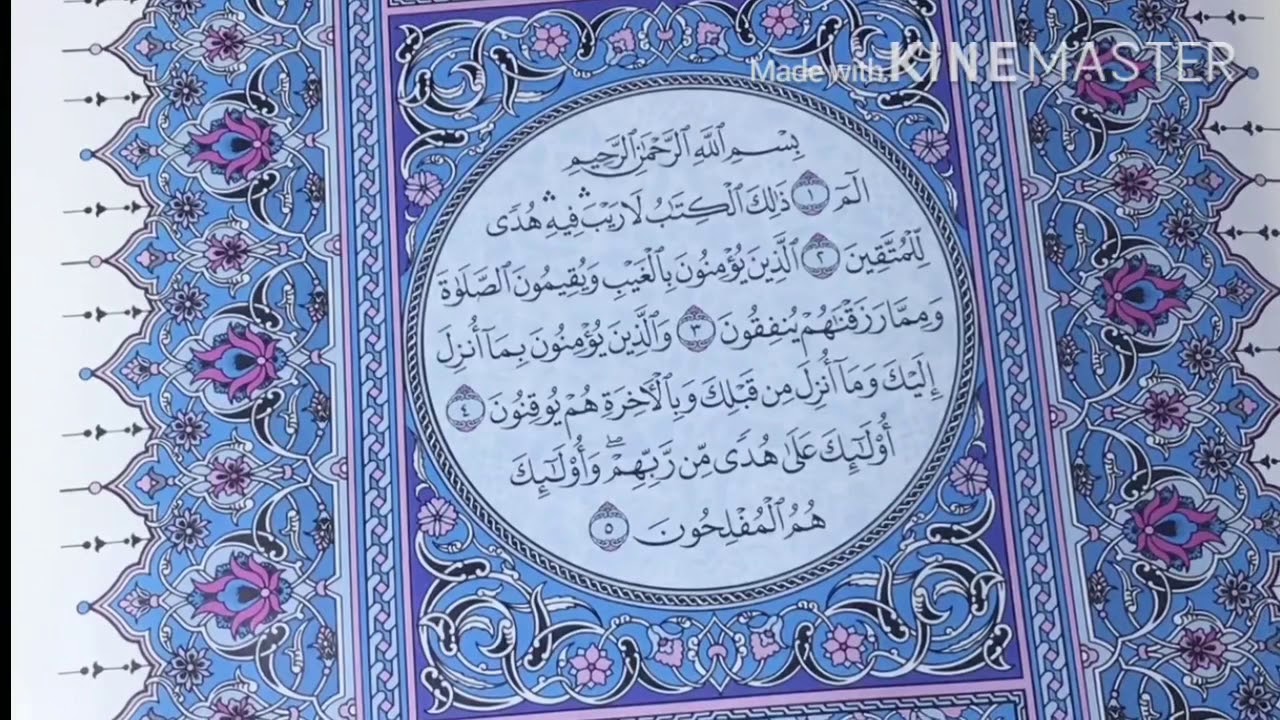 Made with KINEMASTER
بِسْمِ ٱللَّهِ ٱلرَّحْمَٰنِ ٱلرَّحِيمِ
الٓمٓ ١ ذَٰلِكَ ٱلْكِتَٰبُ لَا رَيْبَ ۛ فِيهِ ۛ هُدًى
لِّلْمُتَّقِينَ ٢ ٱلَّذِينَ يُؤْمِنُونَ بِٱلْغَيْبِ وَيُقِيمُونَ ٱلصَّلَوٰةَ
وَمِمَّا رَزَقْنَٰهُمْ يُنفِقُونَ ٣ وَٱلَّذِينَ يُؤْمِنُونَ بِمَآ أُنزِلَ
إِلَيْكَ وَمَآ أُنزِلَ مِن قَبْلِكَ وَبِٱلْءَاخِرَةِ هُمْ يُوقِنُونَ ٤
أُو۟لَٰٓئِكَ عَلَىٰ هُدًى مِّن رَّبِّهِمْ ۖ وَأُو۟لَٰٓئِكَ
هُمُ ٱلْمُفْلِحُونَ ٥